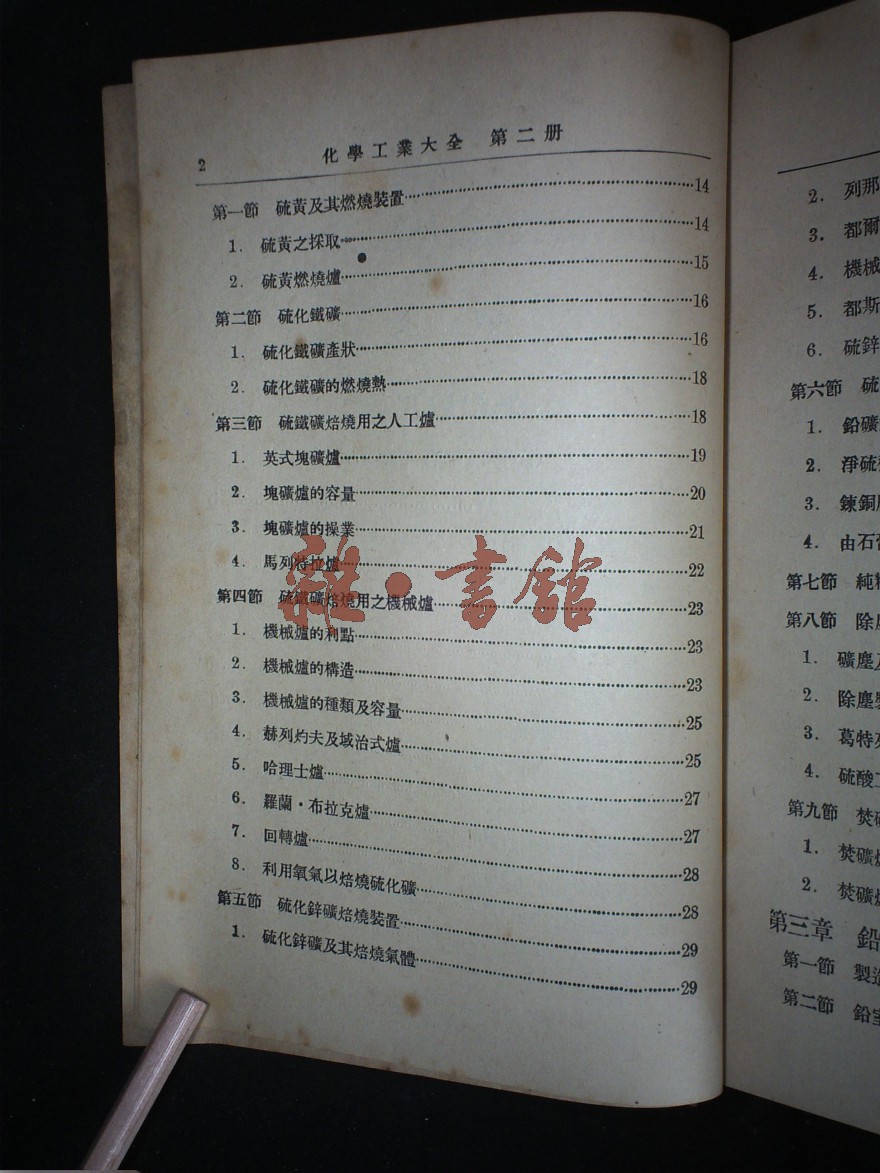 2 化學工業大全 第二册
第一節 硫黃及其燃燒裝置 14
1. 硫黃之採取 14
2. 硫黃燃燒爐 15
第二節 硫化鐵礦 16
1. 硫化鐵礦產狀 16
2. 硫化鐵礦的燃燒熱 18
第三節 硫鐵礦焙燒用之人工爐 18
1. 英式塊礦爐 19
2. 塊礦爐的容量 20
3. 塊礦爐的操業 21
4. 馬列特拉爐 22
第四節 硫鐵礦焙燒用之機械爐 23
1. 機械爐的利點 23
2. 機械爐的構造 23
3. 機械爐的種類及容量 25
4. 赫列灼夫及域治式爐 25
5. 哈理士爐 27
6. 羅蘭·布拉克爐 27
7. 回轉爐 28
8. 利用氧氣以焙燒硫化礦 28
第五節 硫化鋅礦焙燒裝置 29
1. 硫化鋅礦及其焙燒氣體 29
雜·書館
2. 列那
3. 都爾
4. 機械
5. 都斯
6. 硫鋅
第六節 硫
1. 鉛礦
2. 淨硫
3. 鍊銅
4. 由石
第七節 純
第八節 除
1. 礦塵及
2. 除塵
3. 葛特
4. 硫酸工
第九節 焚
1. 焚礦
2. 焚礦
第三章 鉛
第一節 製造
第二節 鉛室